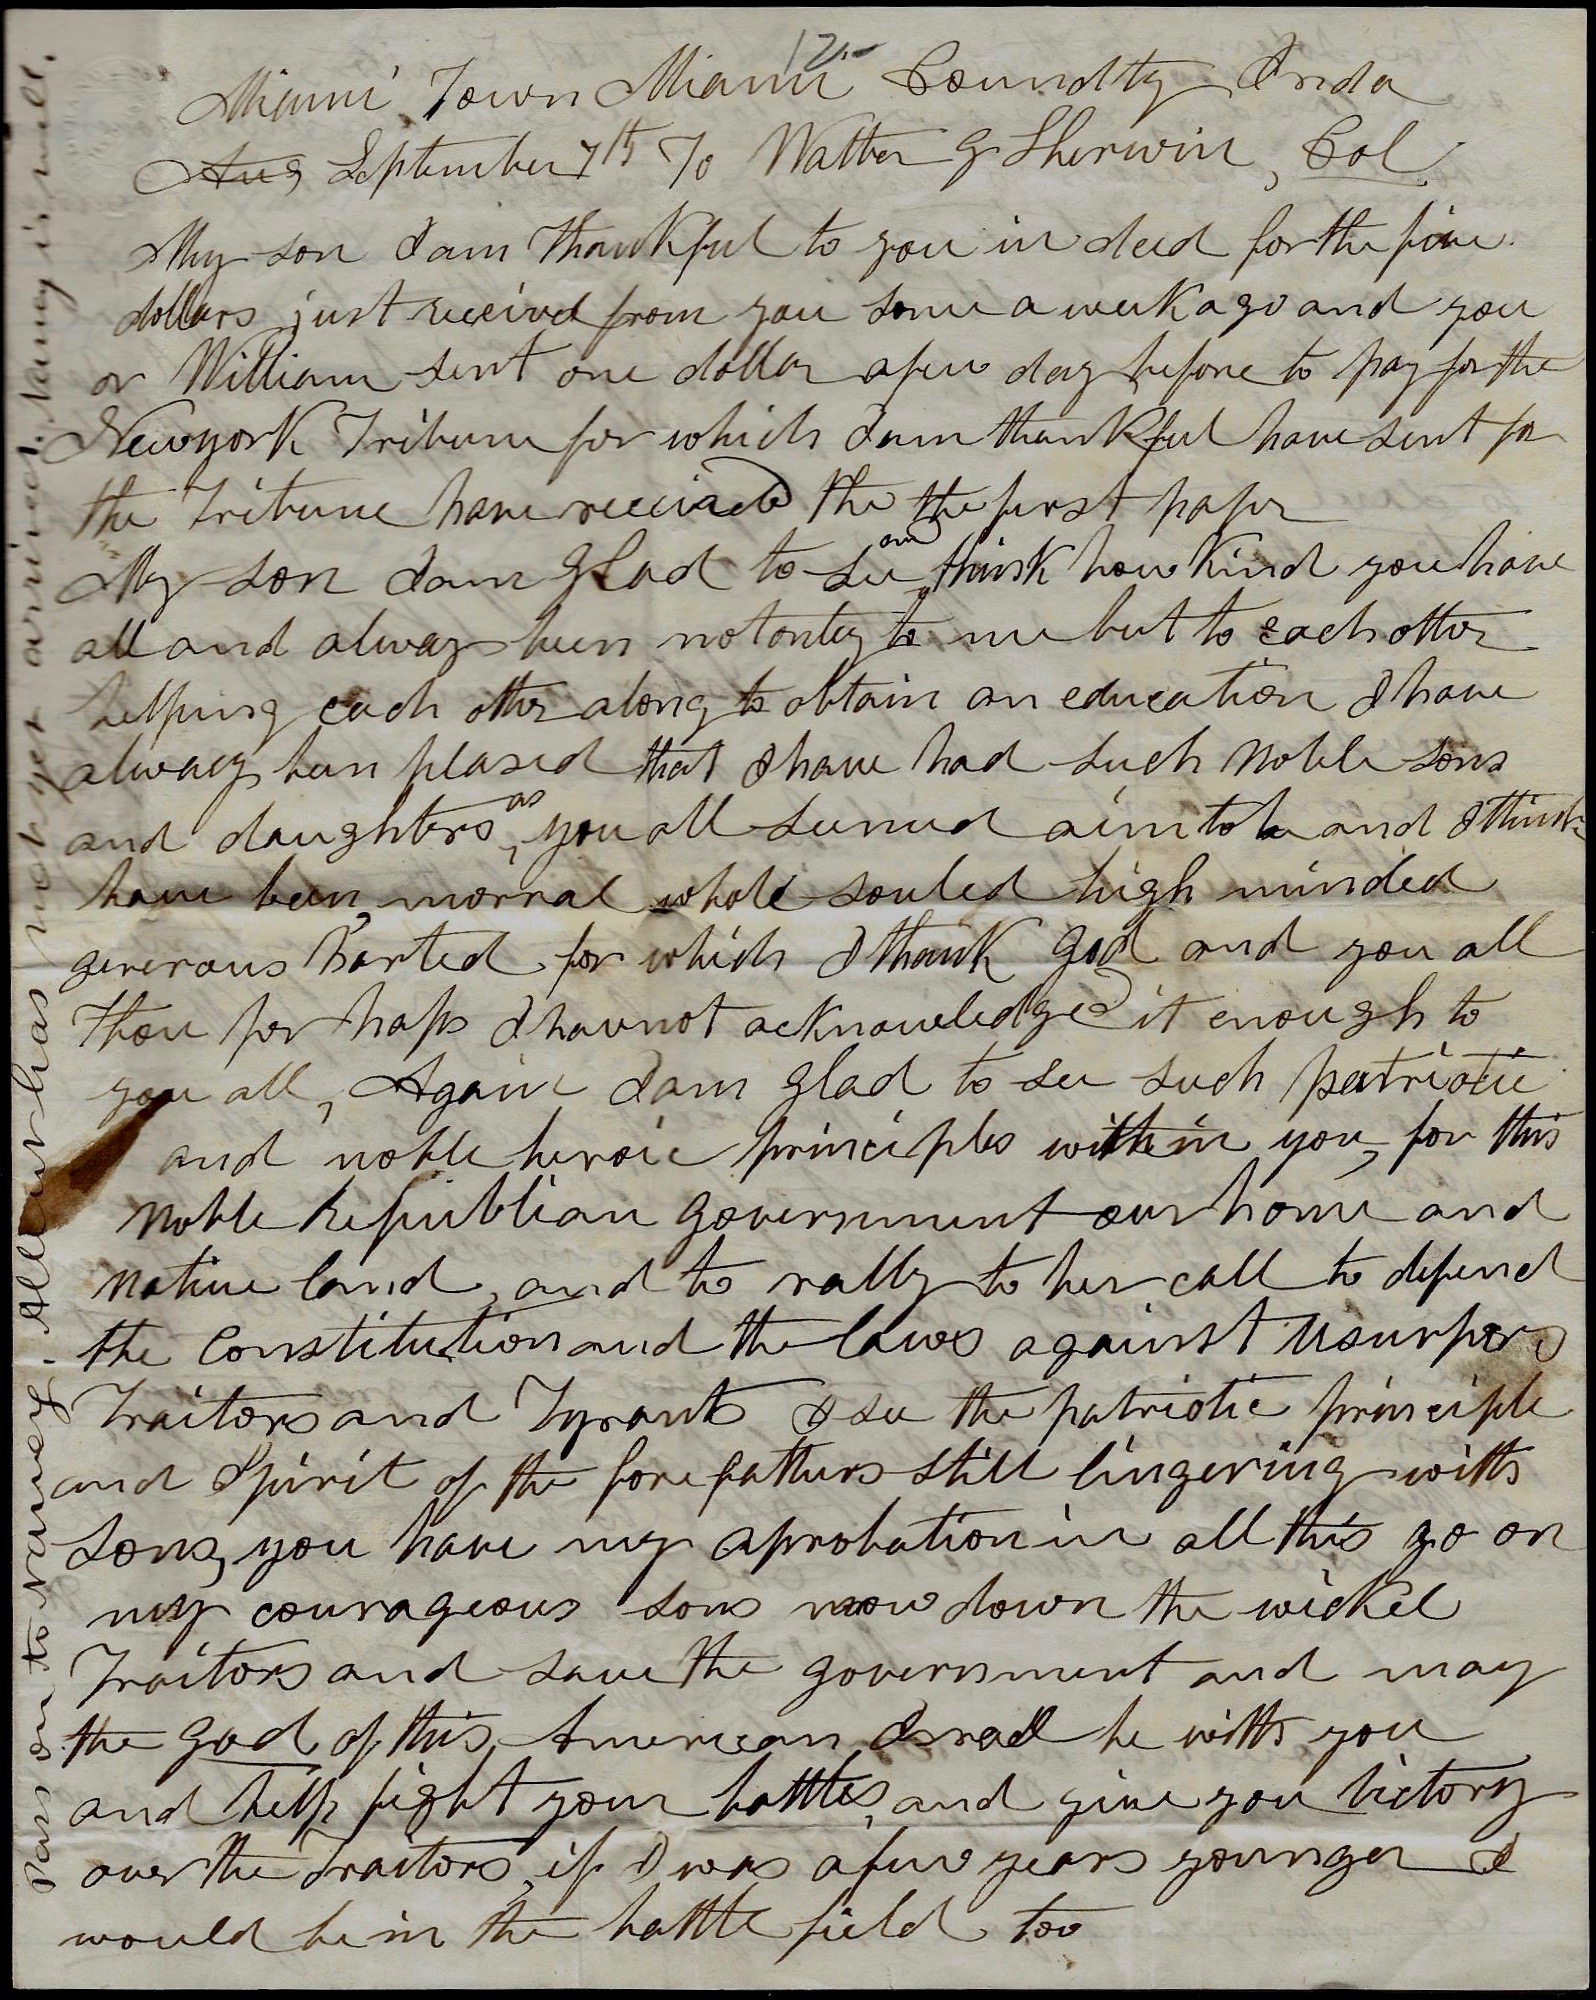 Miami Town Miami Coundty Inda
Aug September 7th To Walter G Sherwin, Col
My son I am Thankful to you in deed for the five
dollars just received from you some a week ago and you
or William sent one dollar a few day before to pay for the
Newyork Tribune for which I am thankful have sent for
the Tribune have received the the first paper
My son I am glad to see and think how kind you have
all and always been not only to me but to each other
helping each other along to obtain an education I have
always been plased that I have had such noble sons
and daughters as, you all seemed aim to be and I think
have been, morral whole souled high minded
generous harted for which I thank God and you all
thou per haps I hav not acknowledged it enough to
you all, Again I am glad to see such patriotic
and noble heroic principles within you, for this
noble Republian government our home and
native land, and to rally to her call to defend
the Constitution and the laws against Usurpors
Traitors and Tyrants I see the patriotic principle
and Spirit of the fore fathers still lingering with
sons, you have my aprobation in all this go on
my courageous sons mow down the wicked
Traitors and save the government and may
the God of this American Israel be with you
and help fight your battles, and give you victory
over the Traitors, if I was a few years younger I
would be in the battle field too
Pass on to Nancy. Allen has not yet arrived. Nancy is well.